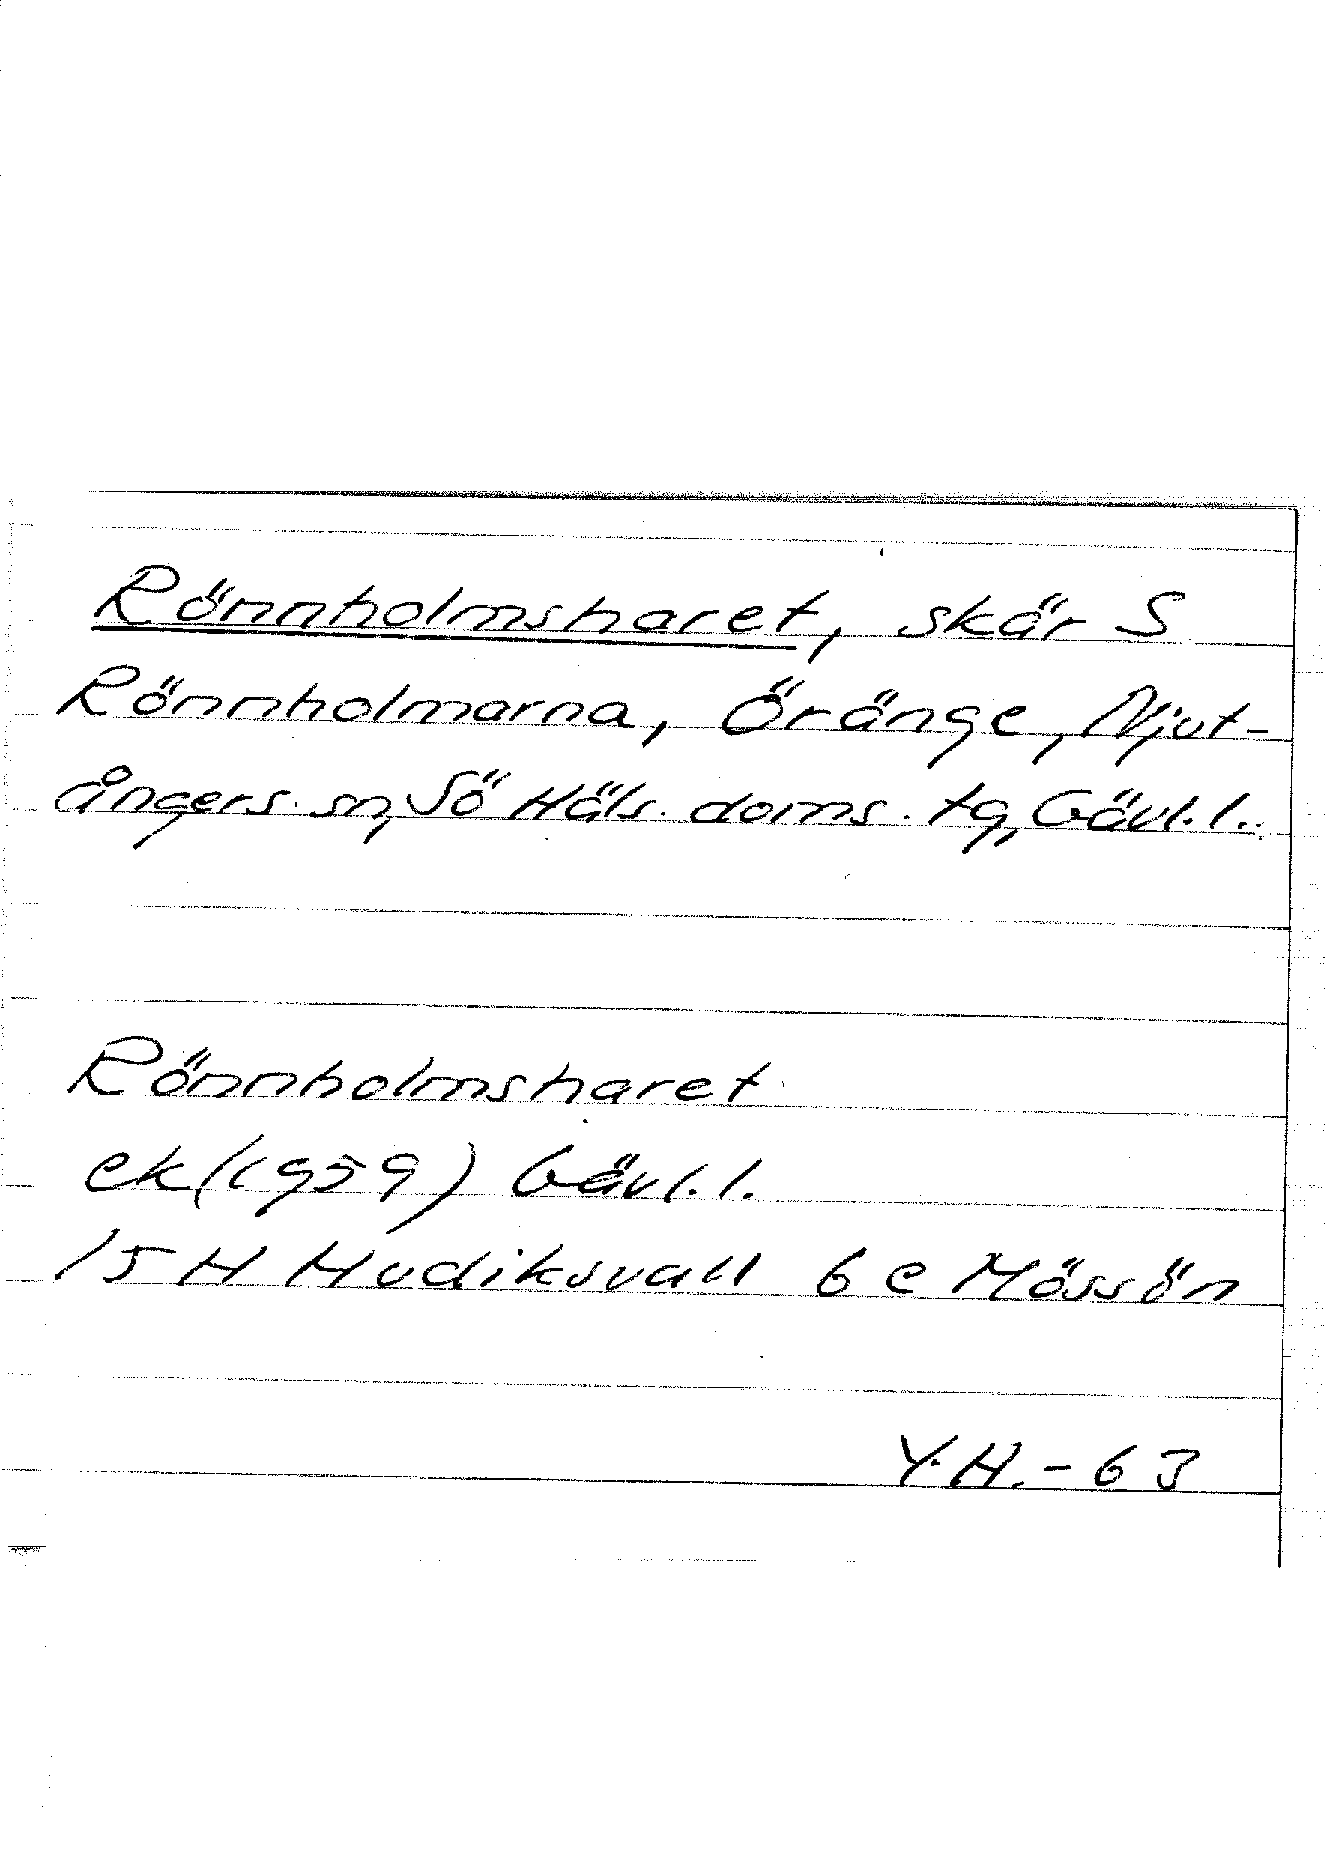 Rönnholmsharet, skär S
Rönnholmarna, Öränge, Njut-
ångers sn, Sö Häls. doms. tg, Gävl. l.
Rönnholmsharet
ek (1959) Gävl. l.
15 H Hudiksvall 6 e Mössön
Y.H.-63